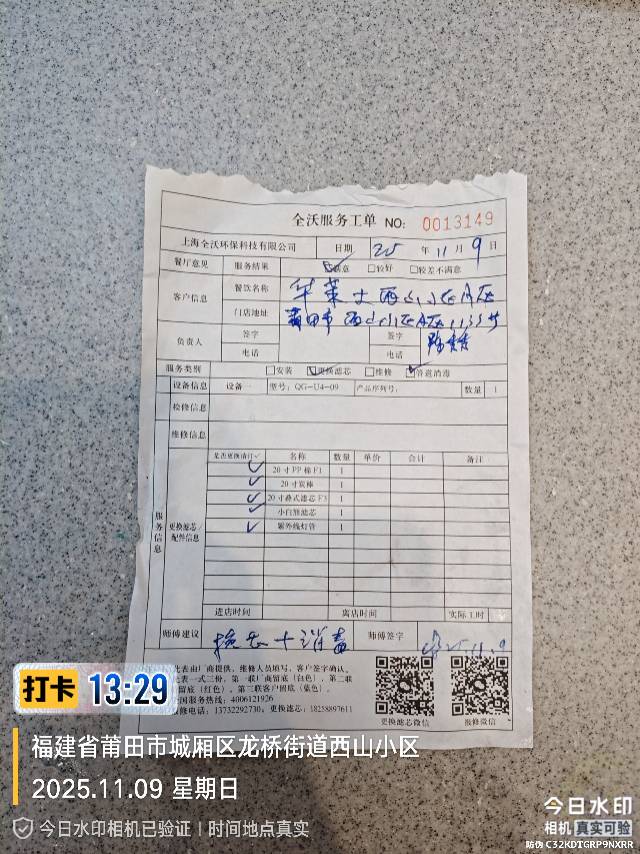 全沃服务工单 NO: 0013149
上海全沃环保科技有限公司 日期 25 年 11 月 9 日
餐厅意见 服务结果 ☑满意 □较好 □较差不满意
客户信息 餐饮名称 华莱士西山小区A区
门店地址 莆田市西山小区A区113号
负责人 签字 签字
电话 电话
服务类别 □安装 ☑更换滤芯 □维修 ☑管道消毒
设备信息 设备 型号: QG-U4-09 产品序列号: 数量 1
检修信息
维修信息
服务信息
更换滤芯/配件信息
是否更换请打✓ 名称 数量 单价 合计 备注
✓ 20寸PP棉F1 1
✓ 20寸炭棒 1
✓ 20寸叠式滤芯F3 1
✓ 小白熊滤芯 1
✓ 紫外线灯管 1
进店时间 离店时间 实际工时
师傅建议 换芯+消毒 师傅签字
此表由厂商提供, 维修人员填写, 客户签字确认,
表一式三份, 第一联厂商留底（白色）, 第二联
留底（红色）, 第三联客户留底（蓝色）.
全国服务热线: 4006121926
电话: 13732292730, 更换滤芯: 18258897611
更换滤芯微信 报修微信
打卡 13:29
福建省莆田市城厢区龙桥街道西山小区
2025.11.09 星期日
今日水印相机已验证 | 时间地点真实
今日水印
相机 真实可验
防伪 C32KDTGRP9NXRR